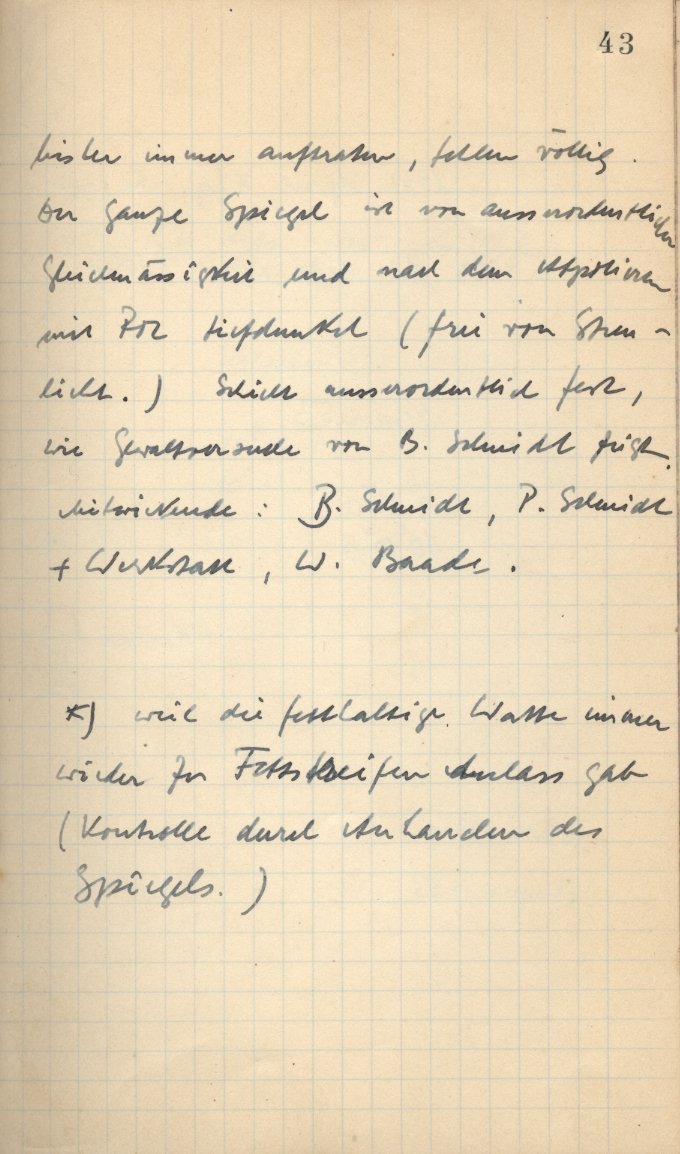 43
bisher immer auftraten, fehlen völlig.
Der ganze Spiegel ist von ausserordentlicher
Gleichmässigkeit und nach dem Abpolieren
mit tiefdunkel (frei von Streu-
licht.) Schicht ausserordentlich fest,
wie Gewaltversuche von B. Schmidt zeigt.
Mitwirkende: B. Schmidt, P. Schmidt
+ Werkstatt, W. Baade.
*) weil die fetthaltige Watte immer
wieder zu Fettstreifen Anlass gab
(Kontrolle durch Anhauchen des
Spiegels.)